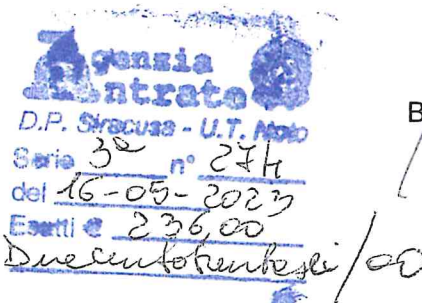 Agenzia
Entrate
D.P. Siracusa - U.T. Noto
Serie 3ª n° 274
del 16-05-2023
Esatti € 236,00
Duecentotrentasei/00
B